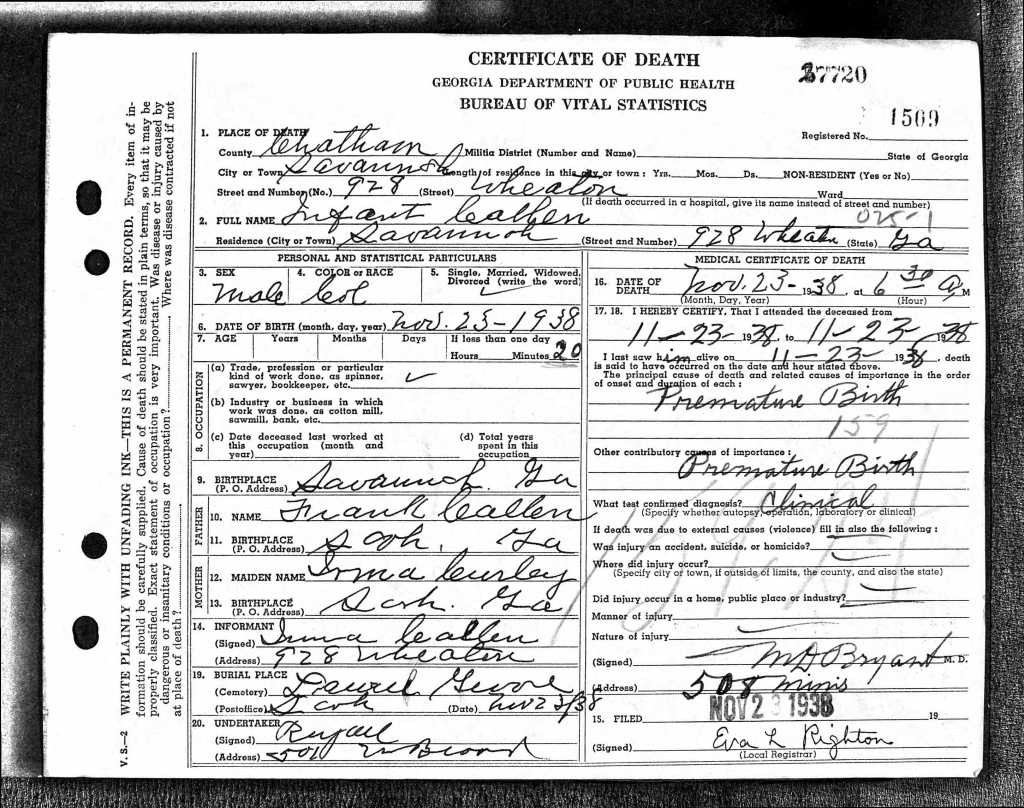 CERTIFICATE OF DEATH
GEORGIA DEPARTMENT OF PUBLIC HEALTH
BUREAU OF VITAL STATISTICS
27720
1509
Registered No.
1. PLACE OF DEATH
County Chatham Militia District (Number and Name) State of Georgia
City or Town Savannah Length of residence in this city or town: Yrs. Mos. Ds. NON-RESIDENT (Yes or No)
Street and Number (No.) 928 (Street) Wheaton Ward
(If death occurred in a hospital, give its name instead of street and number)
2. FULL NAME Infant Callen
Residence (City or Town) Savannah (Street and Number) 928 Wheaton (State) Ga
PERSONAL AND STATISTICAL PARTICULARS
3. SEX 4. COLOR or RACE 5. Single, Married, Widowed, Divorced (write the word)
Male Col
6. DATE OF BIRTH (month, day, year) Nov. 23-1938
7. AGE Years Months Days If less than one day
Hours Minutes 20
8. OCCUPATION
(a) Trade, profession or particular
kind of work done, as spinner,
sawyer, bookkeeper, etc.
(b) Industry or business in which
work was done, as cotton mill,
sawmill, bank, etc.
(c) Date deceased last worked at
this occupation (month and
year)
(d) Total years
spent in this
occupation
9. BIRTHPLACE
(P. O. Address) Savannah. Ga
FATHER
10. NAME Frank Callen
11. BIRTHPLACE
(P. O. Address) Savh. Ga
MOTHER
12. MAIDEN NAME Irma Curley
13. BIRTHPLACE
(P. O. Address) Savh. Ga
14. INFORMANT
(Signed) Irma Callen
(Address) 928 Wheaton
19. BURIAL PLACE
(Cemetery) Laurel Grove
(Postoffice) Savh (Date) Nov 23/38
20. UNDERTAKER
(Signed) Royall
(Address) 501 W Broad
MEDICAL CERTIFICATE OF DEATH
16. DATE OF
DEATH Nov. 23-1938, at 6 30 a M
(Month, Day, Year) (Hour)
17. 18. I HEREBY CERTIFY, That I attended the deceased from
11-23-1938, to 11-23-1938
I last saw him alive on 11-23-1938, death
is said to have occurred on the date and hour stated above.
The principal cause of death and related causes of importance in the order
of onset and duration of each:
Premature Birth
159
Other contributory causes of importance:
Premature Birth
What test confirmed diagnosis? Clinical
(Specify whether autopsy, operation, laboratory or clinical)
If death was due to external causes (violence) fill in also the following:
Was injury an accident, suicide, or homicide?
Where did injury occur?
(Specify city or town, if outside of limits, the county, and also the state)
Did injury occur in a home, public place or industry?
Manner of injury
Nature of injury
(Signed) M D Bryant M. D.
(Address) 508 Mims
NOV 23 1938
15. FILED 19
(Signed) Eva L Righton
(Local Registrar)
WRITE PLAINLY WITH UNFADING INK—THIS IS A PERMANENT RECORD. Every item of in-
formation should be carefully supplied. Cause of death should be stated in plain terms, so that it may be
properly classified. Exact statement of occupation is very important. Was disease or injury caused by
dangerous or insanitary conditions or occupation? Where was disease contracted if not
at place of death?
V. S.—2